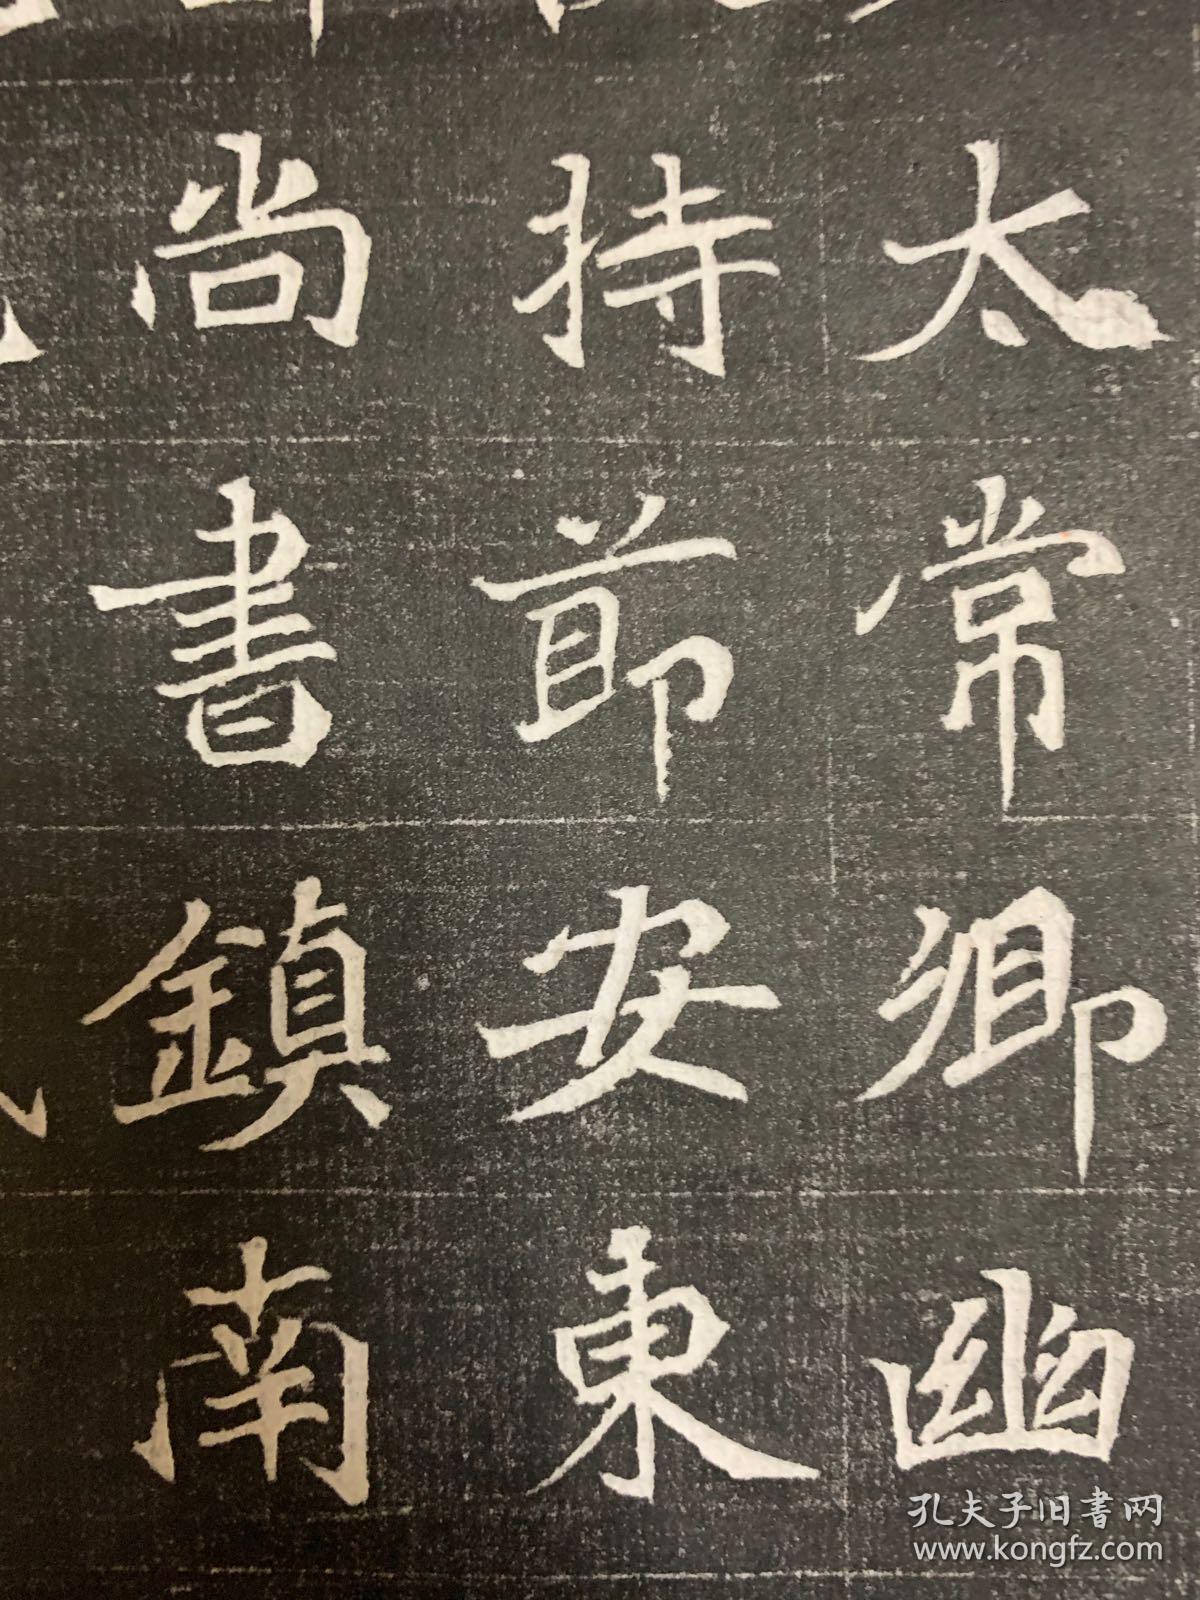 太常卿幽
持節安東
尚書鎮南
孔夫子旧書网
www.kongfz.com